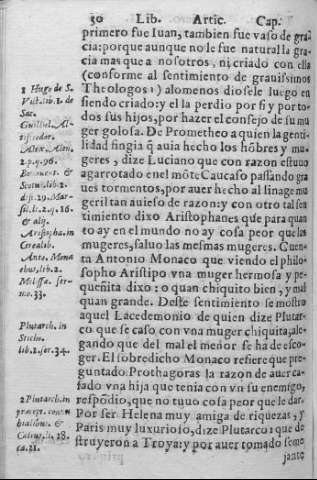 30 Lib. Artic. Cap.
primero fue Iuan, tambien fue vaso de gra
cia: porque aunque no le fue natural la gra
cia mas que a nosotros, ni criado con ella
(conforme al sentimiento de grauissimos
Theologos 1) alomenos diosele luego en
siendo criado: y el la perdio por si y por to-
dos sus hijos, por hazer el consejo de su mu
ger golosa. De Prometheo a quien la genti-
lidad fingia q̃ auia hecho los hõbres y mu-
geres, dize Luciano que con razon estuuo
agarrotado en el mõte Caucaso passando gra
ues tormentos, por auer hecho al linage mu
geril tan auieso de razon: y con otro tal sen
timiento dixo Aristophanes que para quan
to ay en el mundo no ay cosa peor que las
mugeres, saluo las mesmas mugeres. Cuen-
ta Antonio Monaco que viendo el philo-
sopho Aristipo vna muger hermosa y pe-
queñita dixo: o quan chiquito bien, y mal
quan grande. Deste sentimiento se mostro
aquel Lacedemonio de quien dize Plutar-
co que se caso con vna muger chiquita, ale-
gando que del mal el menor se ha de esco-
ger. El sobredicho Monaco refiere que pre
guntado Prothagoras la razon de auer ca-
sado vna hija que tenia con vn su enemigo,
respõdio, que no tuuo cosa peor que le dar.
Por ser Helena muy amiga de riquezas, y
Paris muy luxurioso, dize Plutarco 1 que de
struyeron a Troya: y por auer tomado seme
jante
1 Hugo de S.
Vict. lib. 1. de
Sac.
Guillel. Al-
tisiodor.
Alex. Alen.
2. p. q. 96.
Bonauent. &
Scotus lib. 2.
dist. 29. Mar-
sil. li. 2. q. 16.
& alij.
Aristopha. in
Cerealib.
Anto. Mona
chus, lib. 2.
Melissa. ser-
mo. 33.
Plutarch. in
Stobo.
lib. 2. ser. 34.
2 Plutarch. in
præcep. connu
bialibus. &
Cælius, li. 28.
ca. 21.